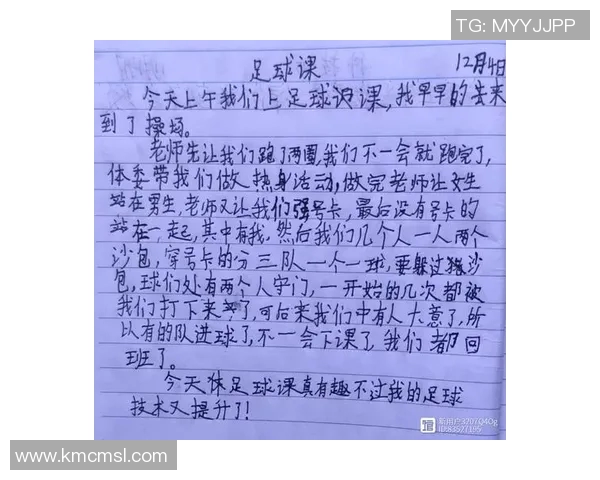 TG: MYYJJPP
足球课 12月4日
今天上午我们上足球课,我早早的来
到了操场。
老师先让我们跑了两圈,我们不一会就跑完了,
体委带我们做热身活动,做完老师让女生
站在男生,老师又让我们穿号卡,最后没有号卡的
站在一起,其中有我,然后我们几个人一人两个
沙包,穿号卡的分三队一个一球,要躲过沙
包,球们处有两个人守门,一开始的几次都被
我们打下来了,可后来我们中有人大意了,所
以有的队进球了,不一会下课了,我们都回
班了。
今天体足球课真有趣不过我的足球
技术又提升了!
新用户3707Q4Og
ID:83527195
www.kmcmsl.com